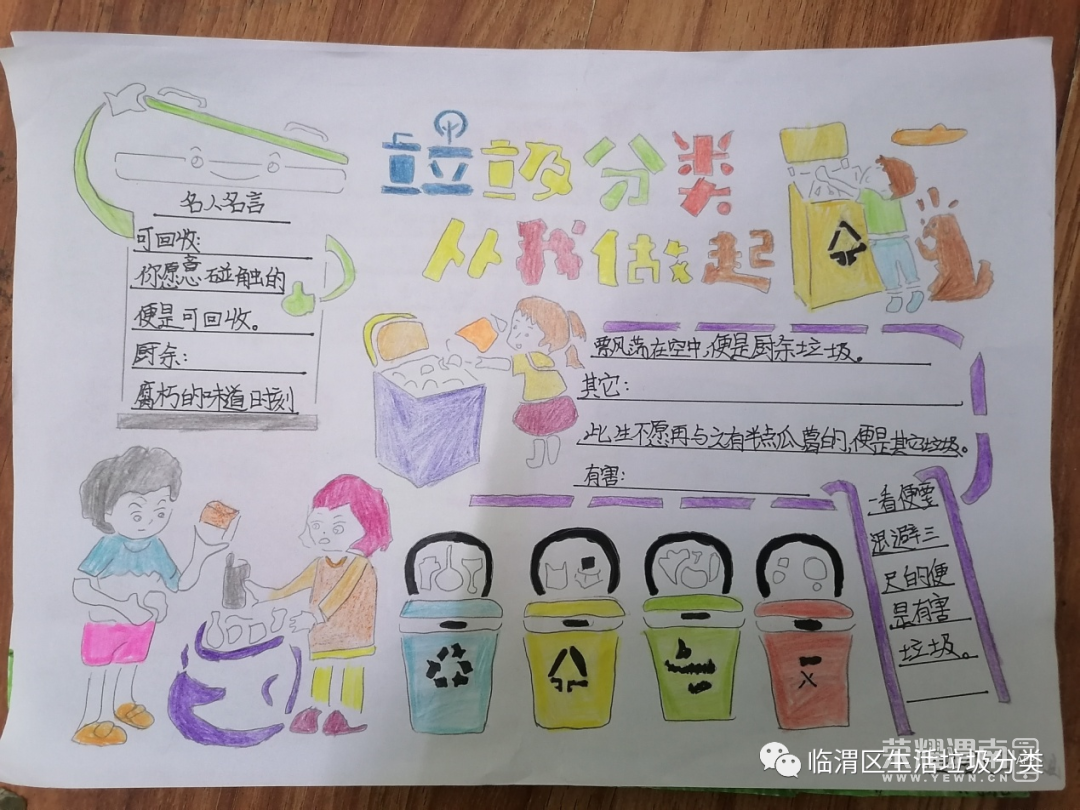 垃圾分类
从我做起
名人名言
可回收:
你愿意碰触的
便是可回收。
厨余:
腐朽的味道日刻
飘荡在空中,便是厨余垃圾。
其它:
此生不愿再与文有半点瓜葛的,便是其它垃圾。
有害:
一看便要
退避三
尺的便
是有害
垃圾。
临渭区生活垃圾分类
荣耀渭南网
WWW.YEWN.CN